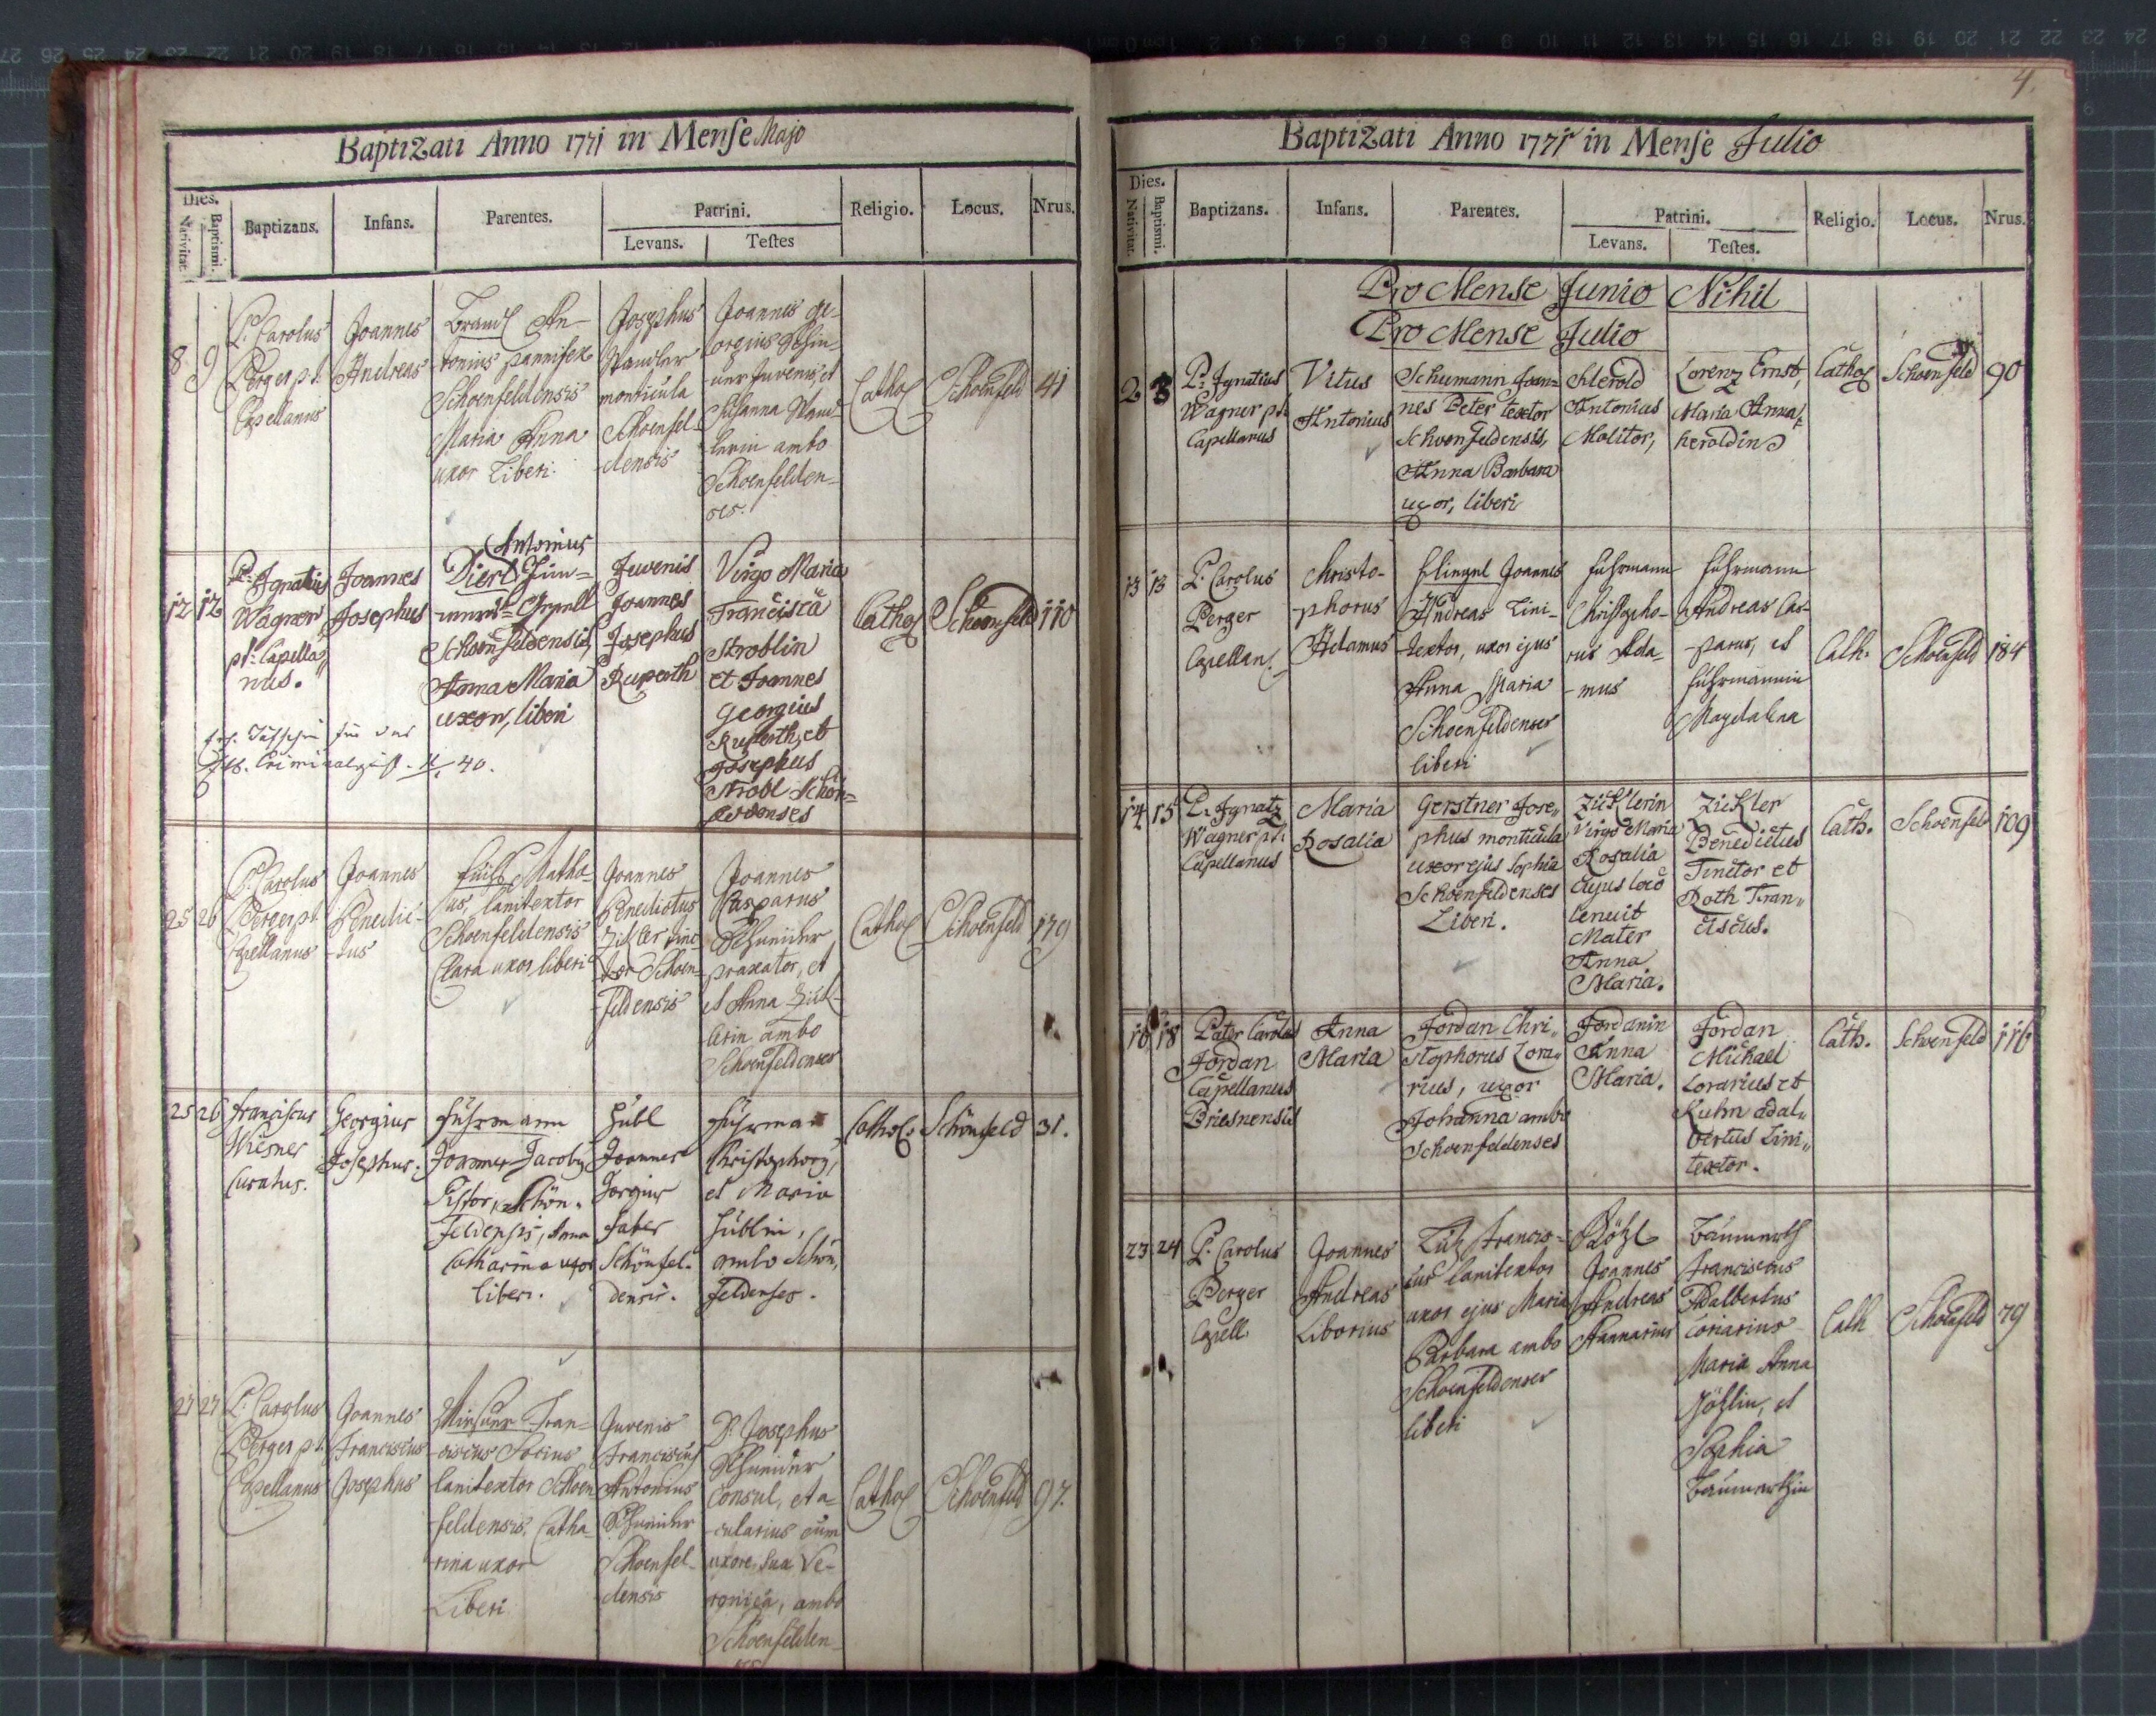 Baptizati Anno 1771 in Mense Majo
Dies.
Nativitat.
Baptismi.
Baptizans.
Infans.
Parentes.
Patrini.
Levans.
Testes
Religio.
Locus.
Nrus.
8
9
P. Carolus
Perger pt.
Capellanus
Joannes
Andreas
Brandl An-
tonius pannifex
Schoenfeldensis
Maria Anna
uxor Liberi.
Josephus
monticula
Schoenfel-
densis
Joannes Ge-
orgius
Juvenis, et
Susanna
lerin ambo
Schoenfelden-
ses.
Cathol
Schoenfeld
41
12
12
P. Ignatius
Wagner
pt. Capella-
nus.
Joannes
Josephus
Antonius
Dierl
Schoenfeldensis,
Anna Maria
uxor, liberi
Juvenis
Joannes
Josephus
Ruperth
Virgo Maria
Francisca
Stroblin
et Joannes
Georgius
Ruperth, et
Josephus
Strobl Schön-
feldenses
Cathol
Schoenfeld
110
40.
25
26
P. Carolus
Perger pt.
Capellanus
Joannes
Benedic-
tus
Mathe-
us, lanitextor
Schoenfeldensis
Clara uxor, liberi
Joannes
Benedictus
Zikler tinc-
tor Schoen-
feldensis
Joannes
Casparus
Schneider
praxator, et
et Anna Zick-
lerin ambo
Schoenfeldenses
Cathol
Schoenfeld
179
25
26
Franciscus
Wiesner
Curatus.
Georgius
Josephus.
Fuhrmann
Joannes Jacobus
Pistor, Schön-
feldensis, Anna
Catharina uxor
liberi.
Hübl
Joannes
Jorgius
faber
Schönfel-
densis.
Fuhrmann
Christophorus,
et Maria
Hüblin,
ambo Schön-
feldenses.
Cathol.
Schönfeld
31.
27
27
P. Carolus
Perger pt.
Capellanus
Joannes
Franciscus
Josephus
Fran-
ciscus Socius
lanitextor Schoen
feldensis. Catha-
rina uxor
Liberi
Juvenis
Franciscus
Antonius
Schneider
Schoenfel-
densis
D. Josephus
Schneider
Consul, et a-
cularius cum
uxore sua Ve-
ronica, ambo
Schoenfelden-
Cathol
Schoenfeld
97.
4.
Baptizati Anno 1771 in Mense Julio
Dies.
Nativitat.
Baptismi.
Baptizans.
Infans.
Parentes.
Patrini.
Levans.
Testes.
Religio.
Locus.
Nrus.
Pro Mense Junio Nihil
Pro Mense Julio
2
3
P. Ignatius
Wagner pt.
Capellanus
Vitus
Antonius
Schumann Joan-
nes Peter textor
Schoenfeldensis,
Anna Barbara
uxor, liberi
Herold
Antonius
Molitor,
Lorenz Ernst,
Maria Anna
heroldin
Cathol
Schoenfeld
90
13
13
P. Carolus
Perger
Capellan.
Christo-
phorus
Adamus
Joannes
Andreas Lini-
textor, uxor ejus
Anna Maria
Schoenfeldenses
liberi
Fuhrmann
Christopho-
rus Ada-
mus
Fuhrmann
Andreas Cas-
parus, et
Fuhrmannin
Magdalena
Cath.
Schoenfeld
184
14
15
P. Ignatz
Wagner pt.
Capellanus
Maria
Rosalia
Gerstner Jose-
phus monticula
uxor ejus Sophia
Schoenfeldenses
Liberi.
Zicklerin
Virgo Maria
Rosalia
cujus loco
tenuit
Mater
Anna
Maria.
Zickler
Benedictus
Tinctor et
Roth Fran-
ciscus.
Cath.
Schoenfeld
109
18
Pater Carolus
Jordan
Capellanus
Priesnensis
Anna
Maria
Jordan Chri-
stophorus Lora-
rius, uxor
Johanna ambo
Schoenfeldenses
Jordanin
Anna
Maria.
Jordan
Michael
Lorarius et
Kuhn adal-
bertus Lini-
textor.
Cath.
Schoenfeld
116
23
24
P. Carolus
Perger
Capell.
Joannes
Andreas
Liborius
Lutz Francis-
cus lanitextor
uxor ejus Maria
Barbara ambo
Schoenfeldenses
liberi
Joannes
Andreas
Stannarius
Franciscus
Adalbertus
coriarius
Maria Anna
et
Sophia
Cath
Schoenfeld
79